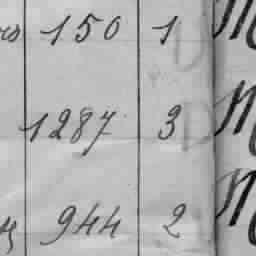 150 1
1287 3
944 2